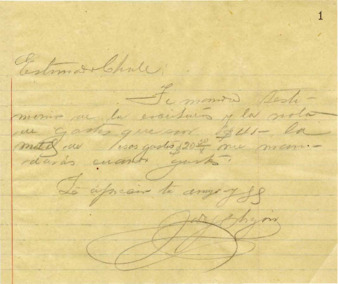 1
Estimado Chale:
Te mando Testi-
monio de la escritura y la nota
de gastos que son
mitad de me man-
darás cuando gustes.
Te aprecia tu amigo y SS